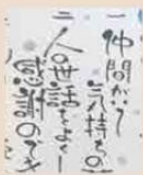 一仲間がい
気持ちの
二人の世話をよく
感謝のでき